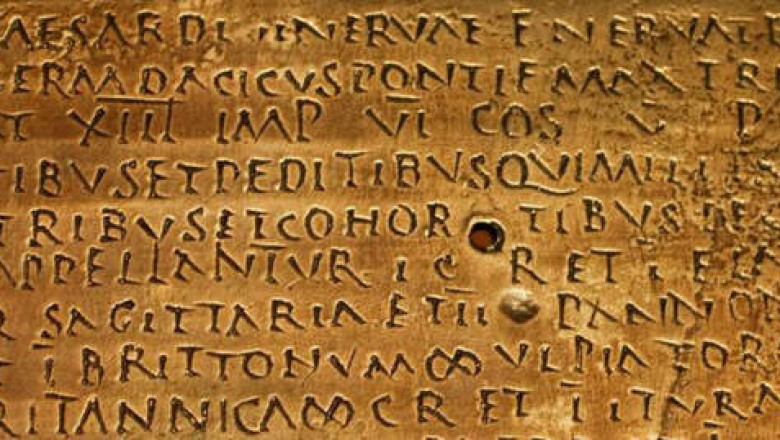 AESAR DIVI NERVAE F NERVA TR
GERM DACICVS PONTIF MAX TR
T XIIII IMP VI COS V P
TIBVS ET PEDITIBVS QVI MILIT
TRIBVS ET COHORTIBVS DE
APPELLANTVR I C R ET I
SAGITTARIA ET III PANNO
I BRITTONVM ∞ VLPIA TOR
RITANNICA ∞ C R ET I ITVRA